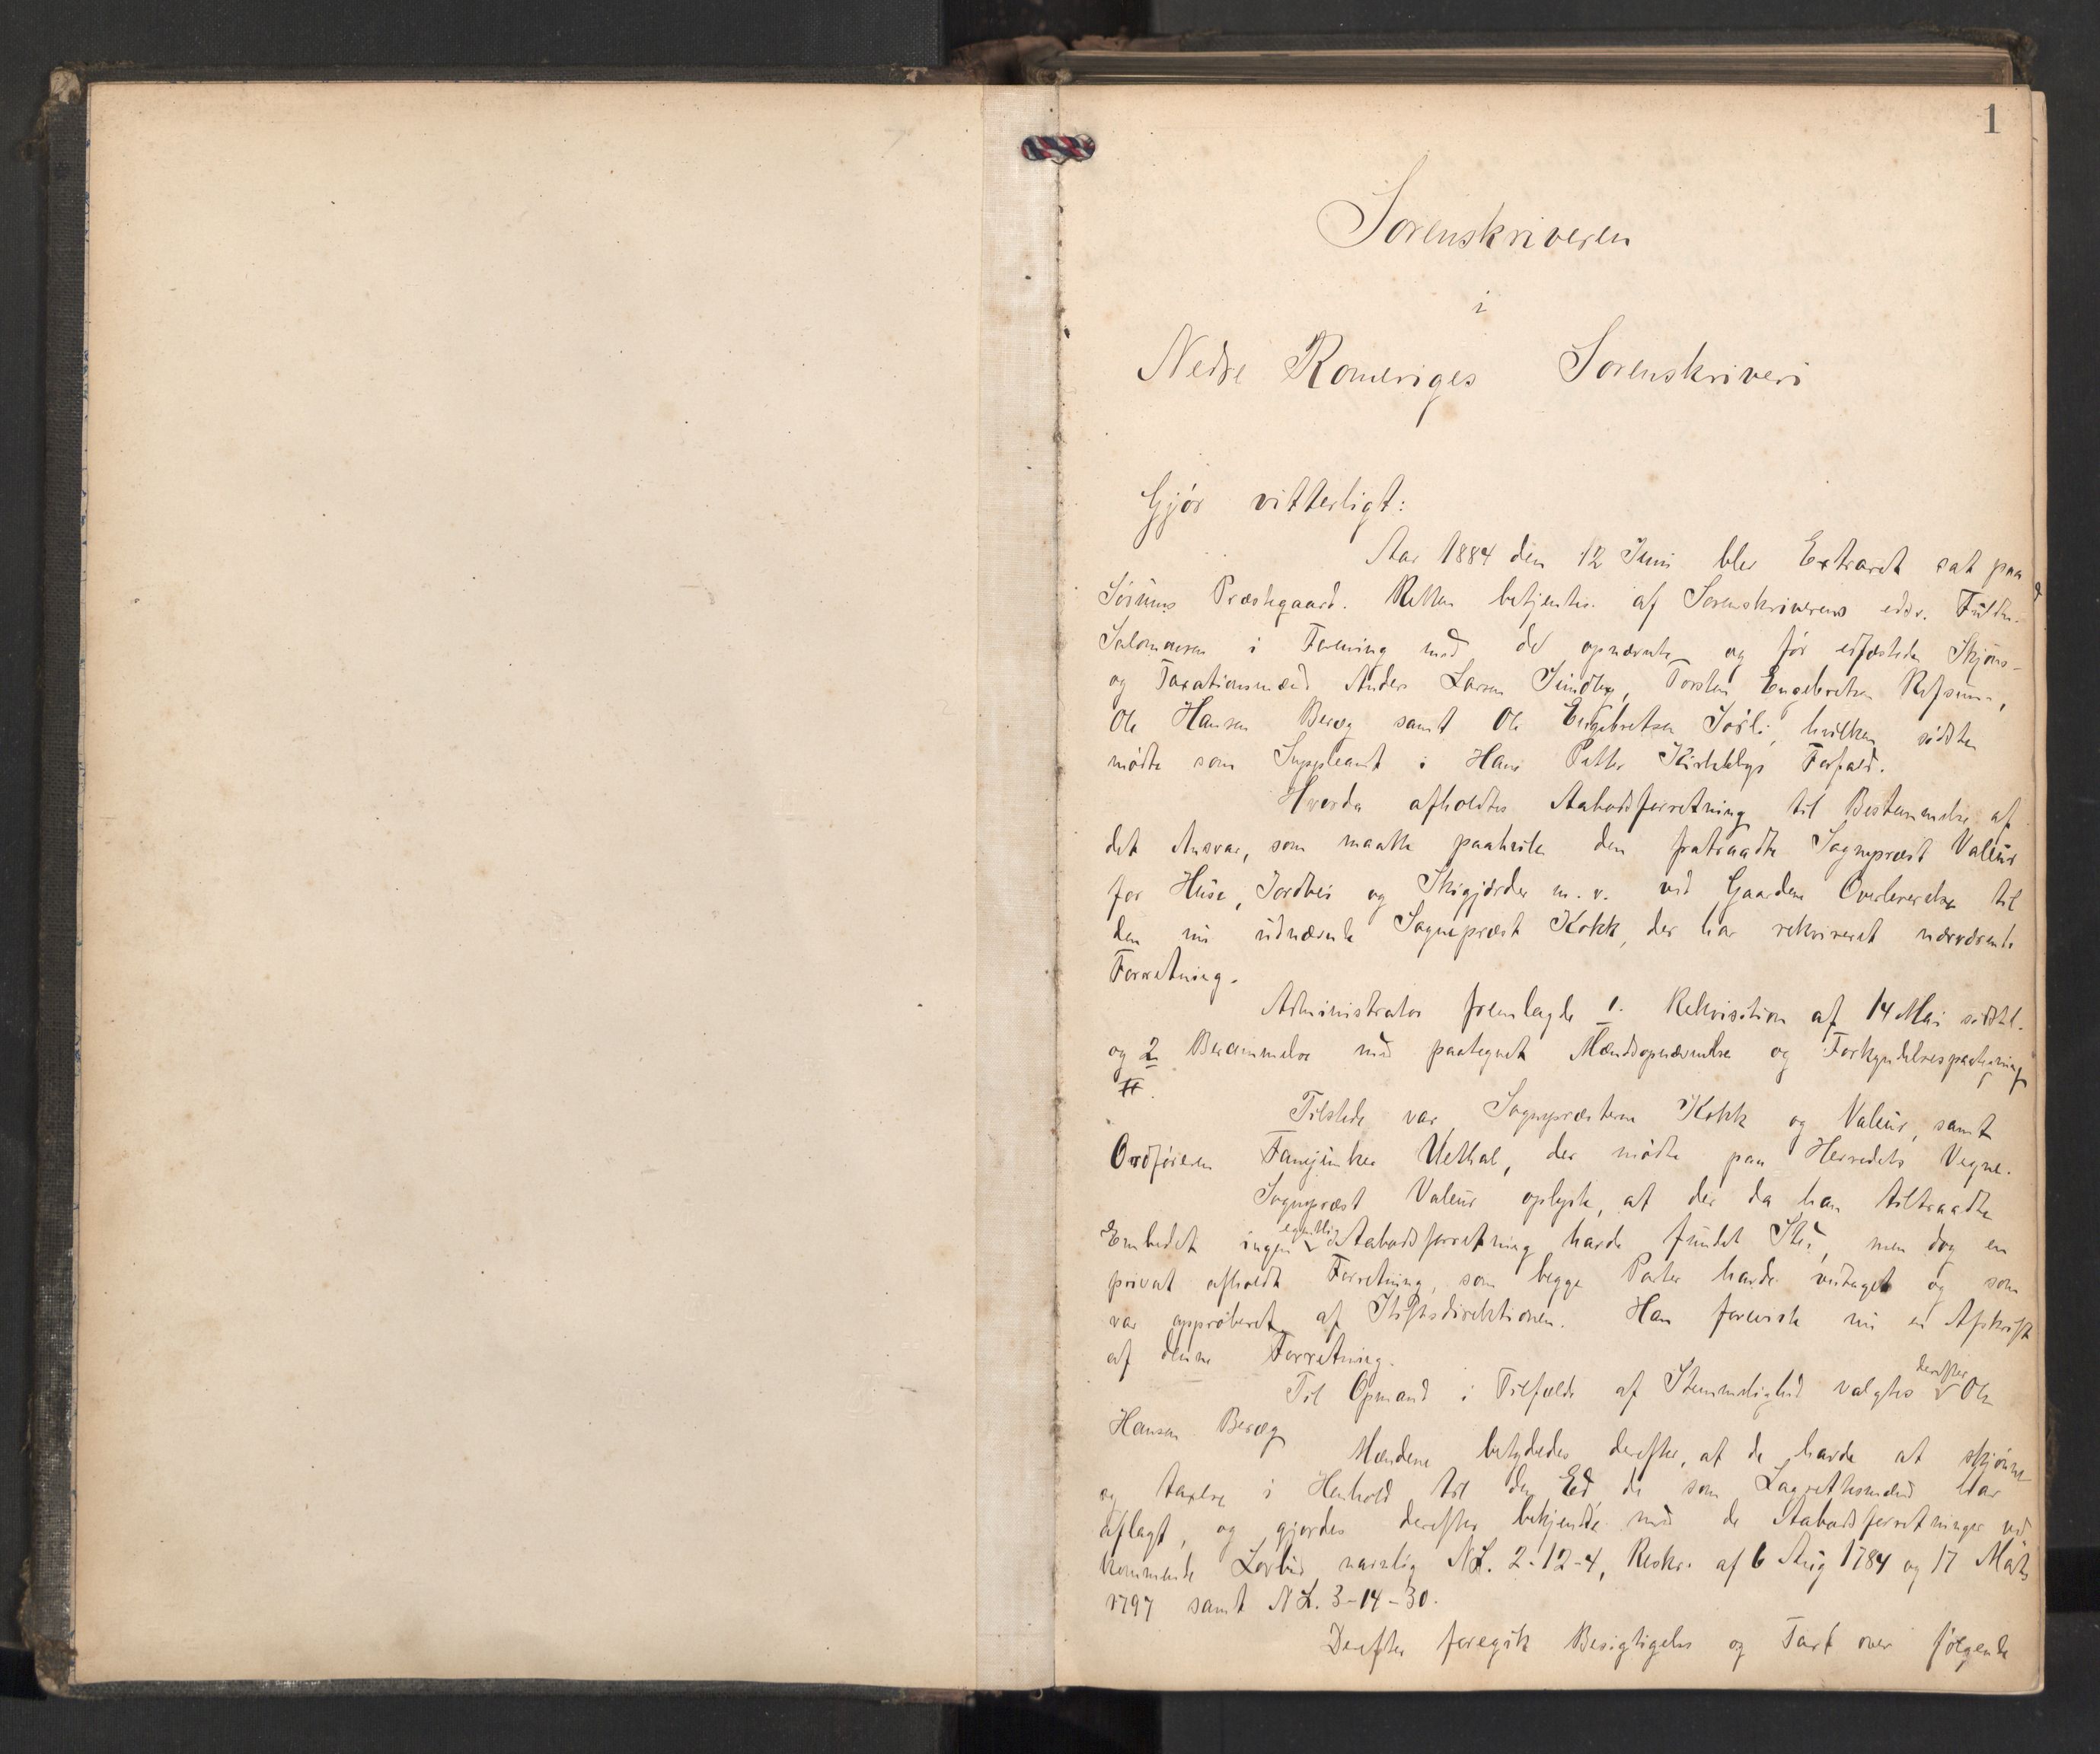 1
Sorenskriveren
i
Nedre Romeriges Sorenskriveri
Gjör vitterligt:
Aar 1884 den 12 Juni blev Extraret sat paa
Sörums Præstegaard. Retten betjentes af Sorenskriverens edsv. Fuldm.
Salomonsen i Forening med de opnævnte og för edfæstede Skjöns-
og Taxationsmænd Anders Larsen Sundby, Torsten Engebretsen Refsum,
Ole Hansen Bereg samt Ole Engebretsen Sörli, hvilken sidste
mödte som Suppleant i Hans Petter Kirkebys Forfald.
Hvorda afholdtes Aabodsforretning til Bestemmelse af
det Ansvar, som maatte paahvile den fratraadte Sognepræst Valeur
for Huse, Jordvei og Skigjærder m. v. ved Gaardens Overleverelse til
den nu udnævnte Sognepræst Kokk, der har rekvireret nærværende
Forretning.
Administrator fremlagde 1. Rekvisition af 14 Mai sidstl.
og 2 Berammelse med paategnet Mændsopnævnelse og Forkyndelsespaategning
Tilstede var Sognepræsterne Kokk og Valeur, samt
Ordföreren Fanejunker Uethal, der mödte paa Herredets Vegne.
Sognepræst Valeur oplyste, at der da han tiltraadte
Embedet ingen egentlig Aabodsforretning havde fundet Sted, men dog en
privat afholdt Forretning, som begge Parter havde vedtaget og som
var approberet af Stiftsdirektionen. Han foreviste nu en Afskrift
af denne Forretning.
Til Opmand i Tilfælde af Stemmelighed valgtes derefter Ole
Hansen Bereg
Mændene betydedes derefter, at de havde at skjönne
og taxere i Henhold til den Ed de som Lagrettesmænd har
aflagt, og gjordes derefter bekjendte med de Aabodsforretninger ved
kommende Lovbud, navnlig N.L. 2-12-4, Reskr. af 6 Aug 1784 og 17 Marts
1797 samt N.L. 3-14-30.
Derefter foregik Besigtigelse og Taxt over fölgende